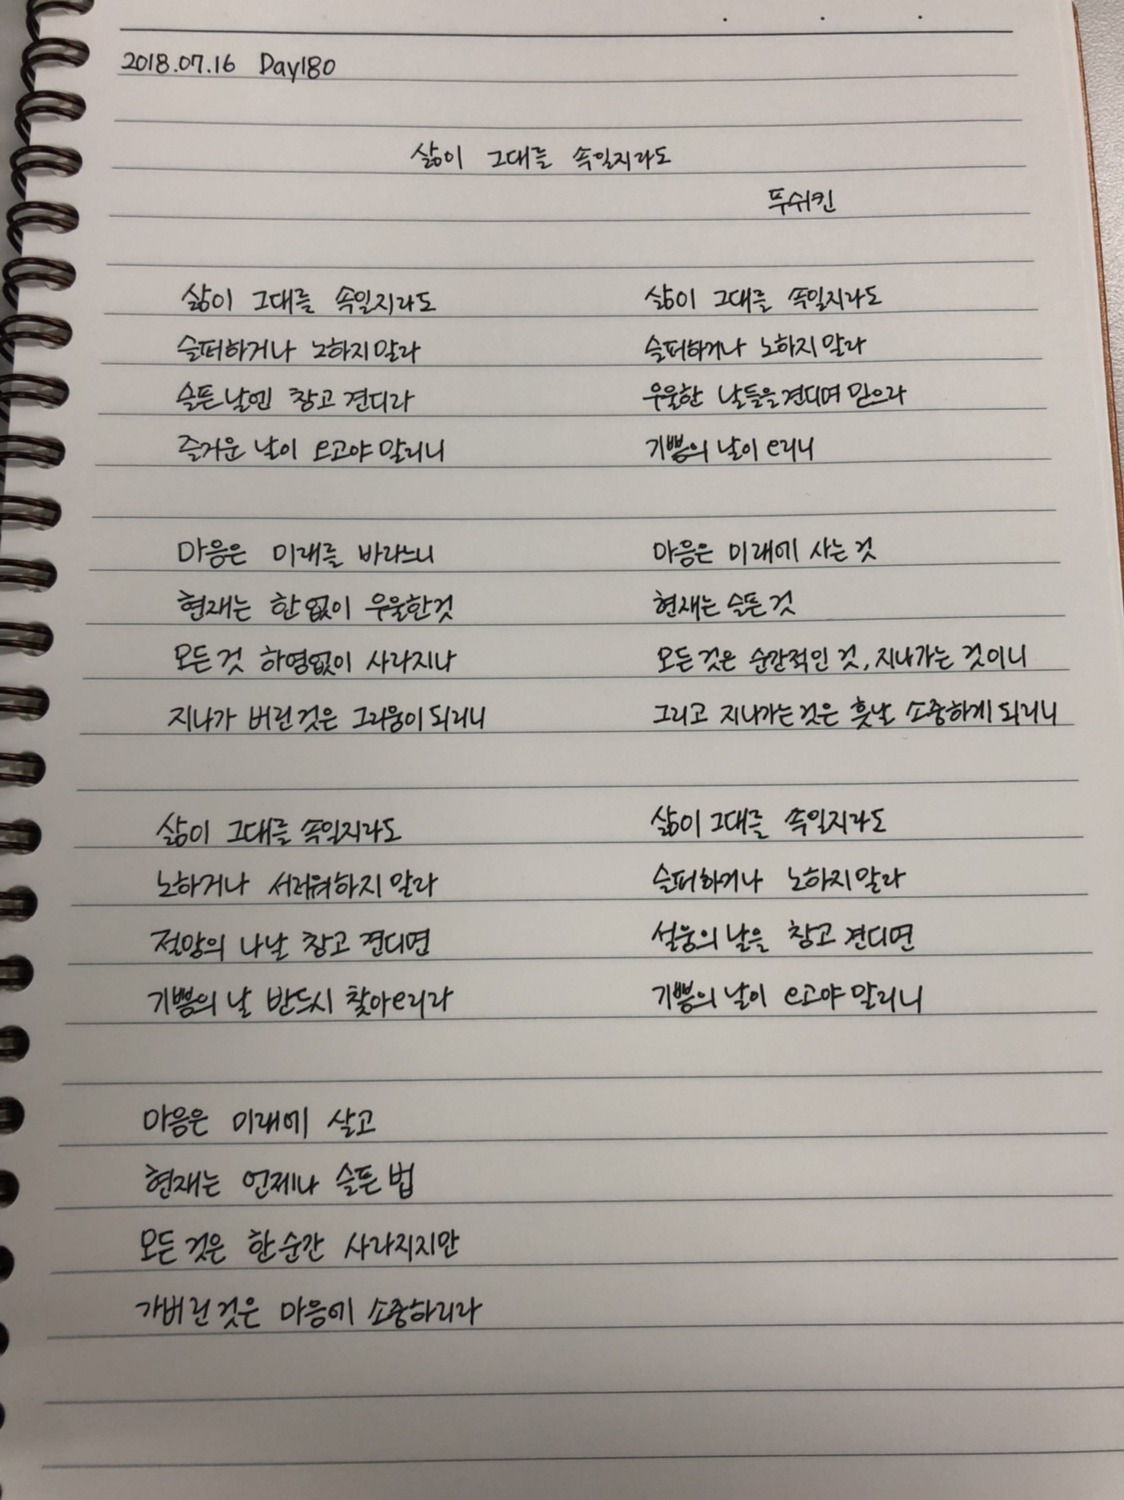 2018.07.16 Day180
삶이 그대를 속일지라도
푸쉬킨
삶이 그대를 속일지라도
슬퍼하거나 노하지말라
슬픈날엔 참고 견디라
즐거운 날이 오고야말리니
마음은 미래를 바라느니
현재는 한없이 우울한것
모든것 하염없이 사라지나
지나가 버린것은 그리움이되리니
삶이 그대를 속일지라도
노하거나 서러워하지말라
절망의 나날 참고 견디면
기쁨의 날 반드시 찾아오리라
마음은 미래에 살고
현재는 언제나 슬픈법
모든것은 한순간 사라지지만
가버린것은 마음에 소중하리라
삶이 그대를 속일지라도
슬퍼하거나 노하지말라
우울한 날들을견디며 믿으라
기쁨의 날이 오리니
마음은 미래에 사는것
현재는 슬픈것
모든것은 순간적인 것, 지나가는 것이니
그리고 지나가는것은 훗날 소중하게되리니
삶이그대를 속일지라도
슬퍼하거나 노하지말라
설움의날을 참고 견디면
기쁨의날이 오고야말리니